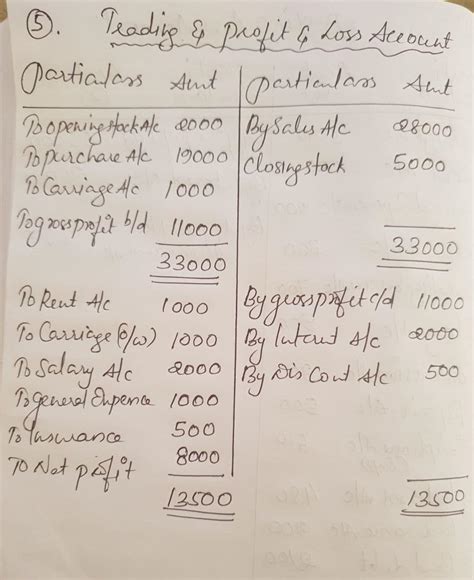 5. Trading & Profit & Loss Account
Particulars Amt Particulars Amt
To opening stock A/c 2000 By Sales A/c 28000
To purchase A/c 19000 Closing stock 5000
To Carriage A/c 1000
To gross profit b/d 11000
33000 33000
To Rent A/c 1000 By gross profit c/d 11000
To Carriage (o/w) 1000 By Interest A/c 2000
To Salary A/c 2000 By Dis Count A/c 500
To general Expence 1000
To Insurance 500
To Net profit 8000
13500 13500